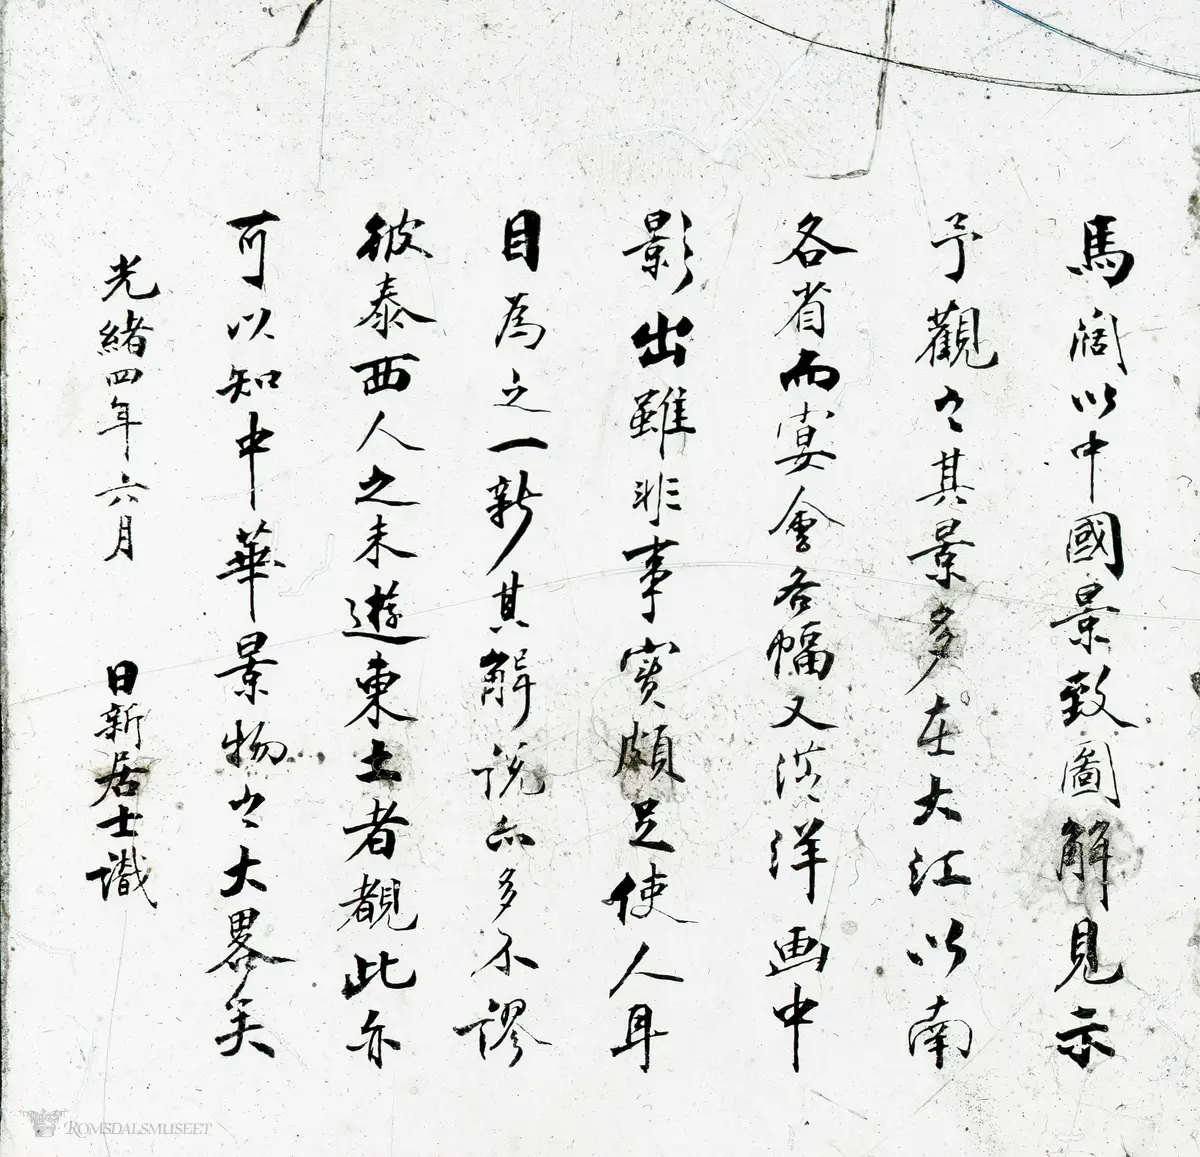 馬阔以中國景致圖解見示
予觀之其景多在大江以南
各省而宴會各幅又從洋画中
影出雖非事實頗足使人耳
目為之一新其解說亦多不謬
彼泰西人之未遊東土者觀此亦
可以知中華景物之大畧矣
光緒四年六月 日新居士識
ROMSDALSMUSEET